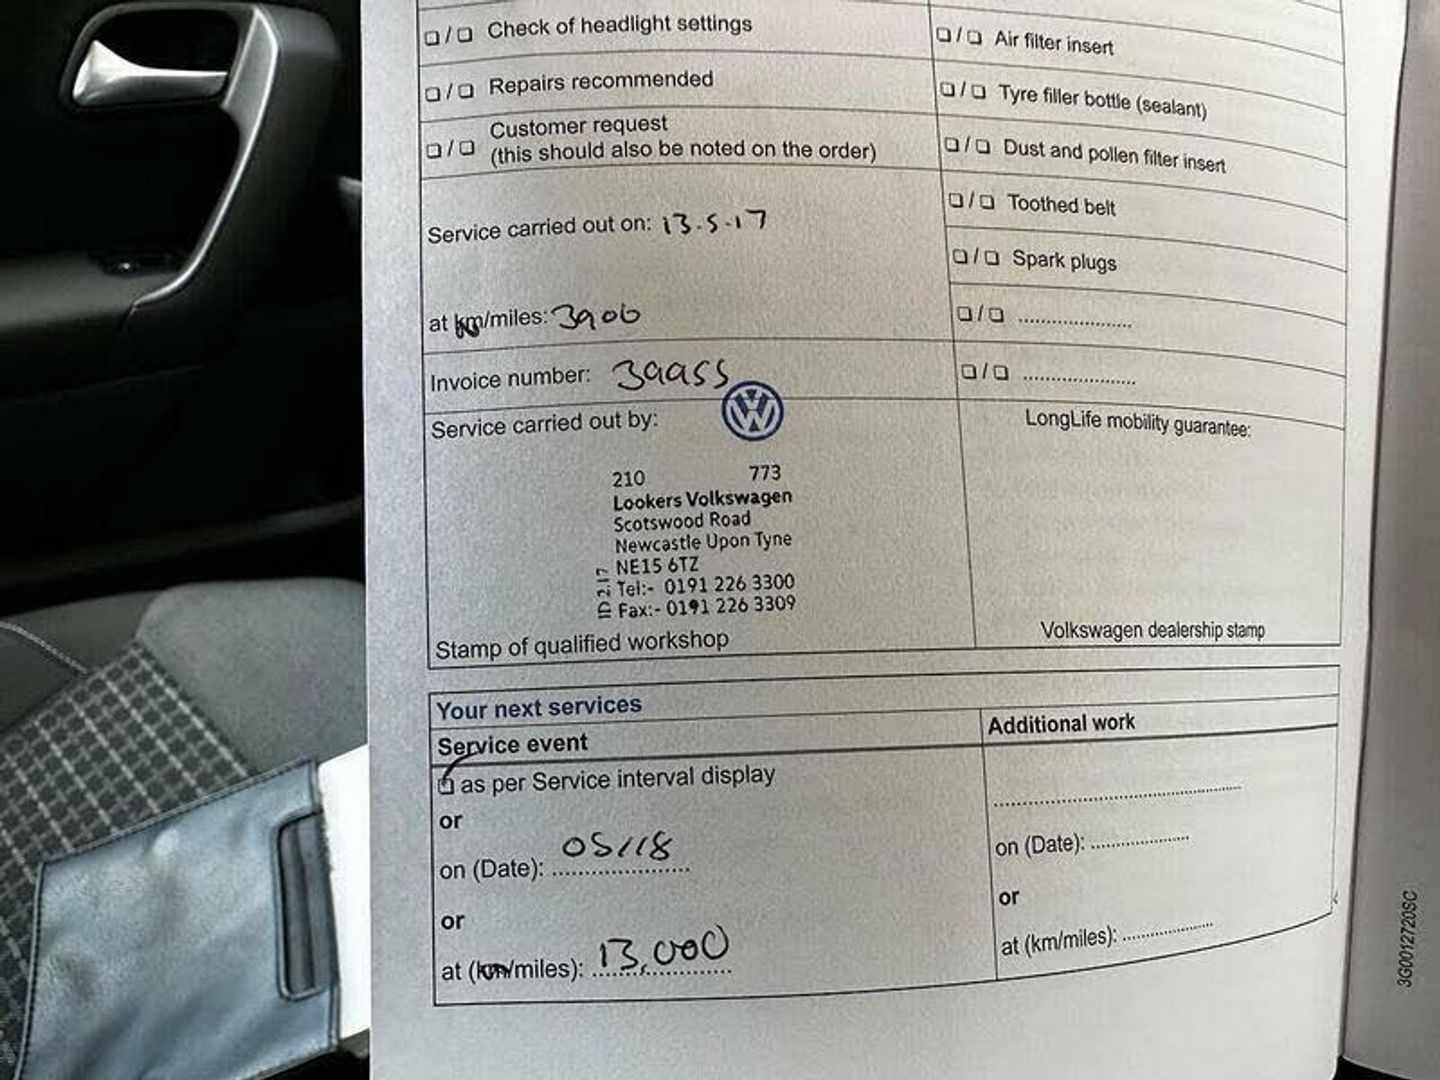 ❏ / ❏ Check of headlight settings
❏ / ❏ Repairs recommended
❏ / ❏ Customer request
(this should also be noted on the order)
Service carried out on: 13.5.17
at km/miles: 3906
Invoice number: 39955
Service carried out by:
210 773
Lookers Volkswagen
Scotswood Road
Newcastle Upon Tyne
NE15 6TZ
Tel:- 0191 226 3300
Fax:- 0191 226 3309
Stamp of qualified workshop
❏ / ❏ Air filter insert
❏ / ❏ Tyre filler bottle (sealant)
❏ / ❏ Dust and pollen filter insert
❏ / ❏ Toothed belt
❏ / ❏ Spark plugs
❏ / ❏ ......................
❏ / ❏ ......................
LongLife mobility guarantee:
Volkswagen dealership stamp
Your next services
Service event
❏ as per Service interval display
or
on (Date): 05/18
or
at (km/miles): 13,000
Additional work
on (Date): ....................
or
at (km/miles): ..................
3G0012720SC